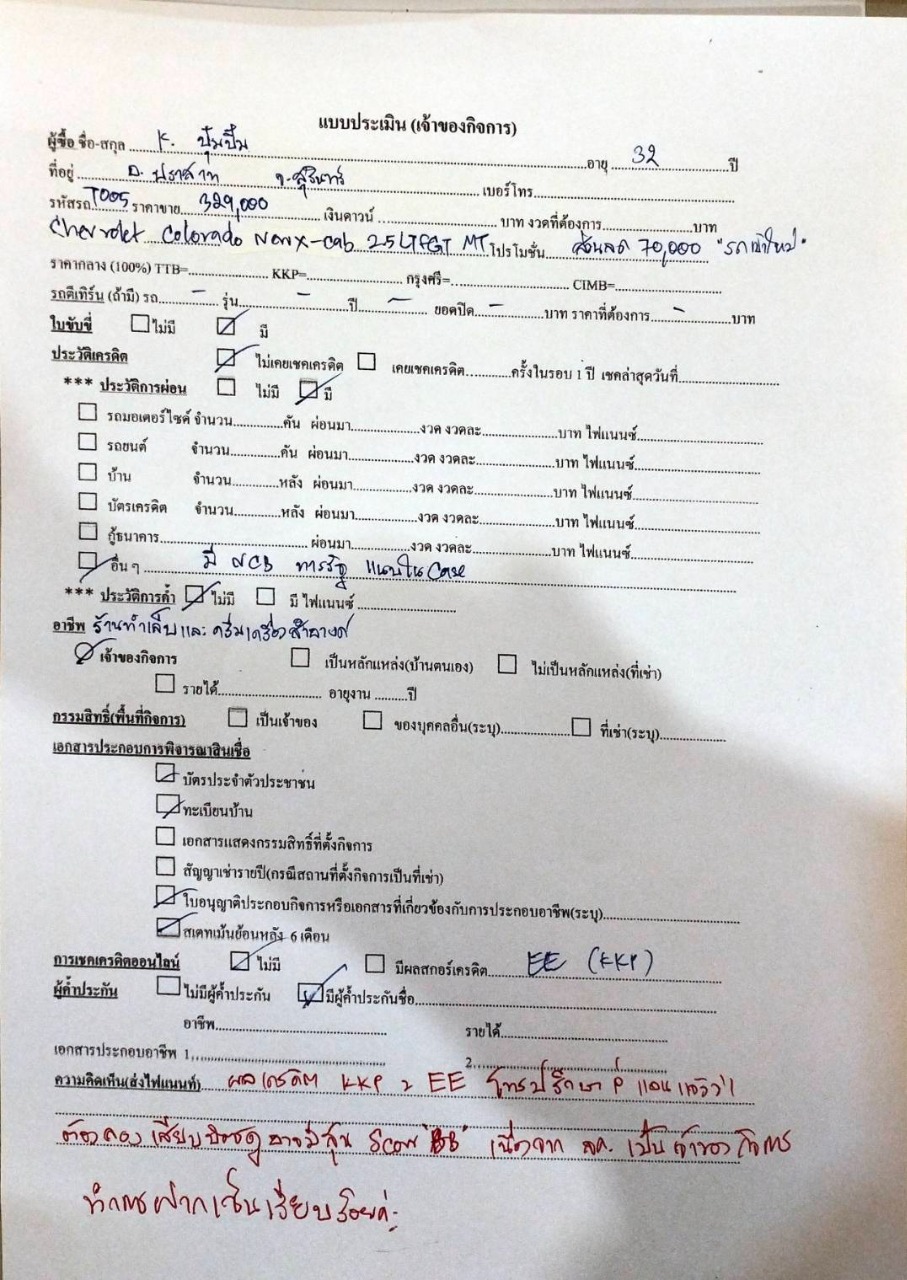 แบบประเมิน (เจ้าของกิจการ)
ผู้ซื้อ ชื่อ-สกุล K. ปุ้มปิ้ม อายุ 32 ปี
ที่อยู่ อ. ปราสาท จ.สุรินทร์ เบอร์โทร
รหัสรถ T005 ราคาขาย 329,000 เงินดาวน์ บาท งวดที่ต้องการ บาท
Chevrolet Colorado New X-cab 2.5 MT โปรโมชั่น ส่วนลด 70,000 "รถเข้าใหม่"
ราคากลาง (100%) TTB= KKP= กรุงศรี= CIMB=
รถตีเทิร์น (ถ้ามี) รถ - รุ่น - ปี - ยอดปิด - บาท ราคาที่ต้องการ - บาท
ใบขับขี่ ไม่มี มี
ประวัติเครดิต ไม่เคยเชคเครดิต เคยเชคเครดิต ครั้งในรอบ 1 ปี เชคล่าสุดวันที่
*** ประวัติการผ่อน ไม่มี มี
รถมอเตอร์ไซด์ จำนวน คัน ผ่อนมา งวด งวดละ บาท ไฟแนนซ์
รถยนต์ จำนวน คัน ผ่อนมา งวด งวดละ บาท ไฟแนนซ์
บ้าน จำนวน หลัง ผ่อนมา งวด งวดละ บาท ไฟแนนซ์
บัตรเครดิต จำนวน หลัง ผ่อนมา งวด งวดละ บาท ไฟแนนซ์
กู้ธนาคาร ผ่อนมา งวด งวดละ บาท ไฟแนนซ์
อื่น ๆ มี NCB ทางรัฐ แนบใน Case
*** ประวัติการค้ำ ไม่มี มี ไฟแนนซ์
อาชีพ ร้านทำเล็บและ ครีมเครื่องสำอางค์
เจ้าของกิจการ เป็นหลักแหล่ง(บ้านตนเอง) ไม่เป็นหลักแหล่ง(ที่เช่า)
รายได้ อายุงาน ปี
กรรมสิทธิ์(พื้นที่กิจการ) เป็นเจ้าของ ของบุคคลอื่น(ระบุ) ที่เช่า(ระบุ)
เอกสารประกอบการพิจารณาสินเชื่อ
บัตรประจำตัวประชาชน
ทะเบียนบ้าน
เอกสารแสดงกรรมสิทธิ์ที่ตั้งกิจการ
สัญญาเช่ารายปี(กรณีสถานที่ตั้งกิจการเป็นที่เช่า)
ใบอนุญาติประกอบกิจการหรือเอกสารที่เกี่ยวข้องกับการประกอบอาชีพ(ระบุ)
สเตทเม้นย้อนหลัง 6 เดือน
การเชคเครดิตออนไลน์ ไม่มี มีผลสกอร์เครดิต EE (KKP)
ผู้ค้ำประกัน ไม่มีผู้ค้ำประกัน มีผู้ค้ำประกันชื่อ
อาชีพ รายได้
เอกสารประกอบอาชีพ 1. 2.
ความคิดเห็น(ส่งไฟแนนท์) ผลเครดิต KKP = EE โทรปรึกษา P' แอน แจ้งว่า
ต้องลองเสียบบัตรดู อาจมีลุ้น Score "BB" เนื่องจาก ลค. เป็นเจ้าของกิจการ
ทำการฝากเซ็นเรียบร้อยค่ะ